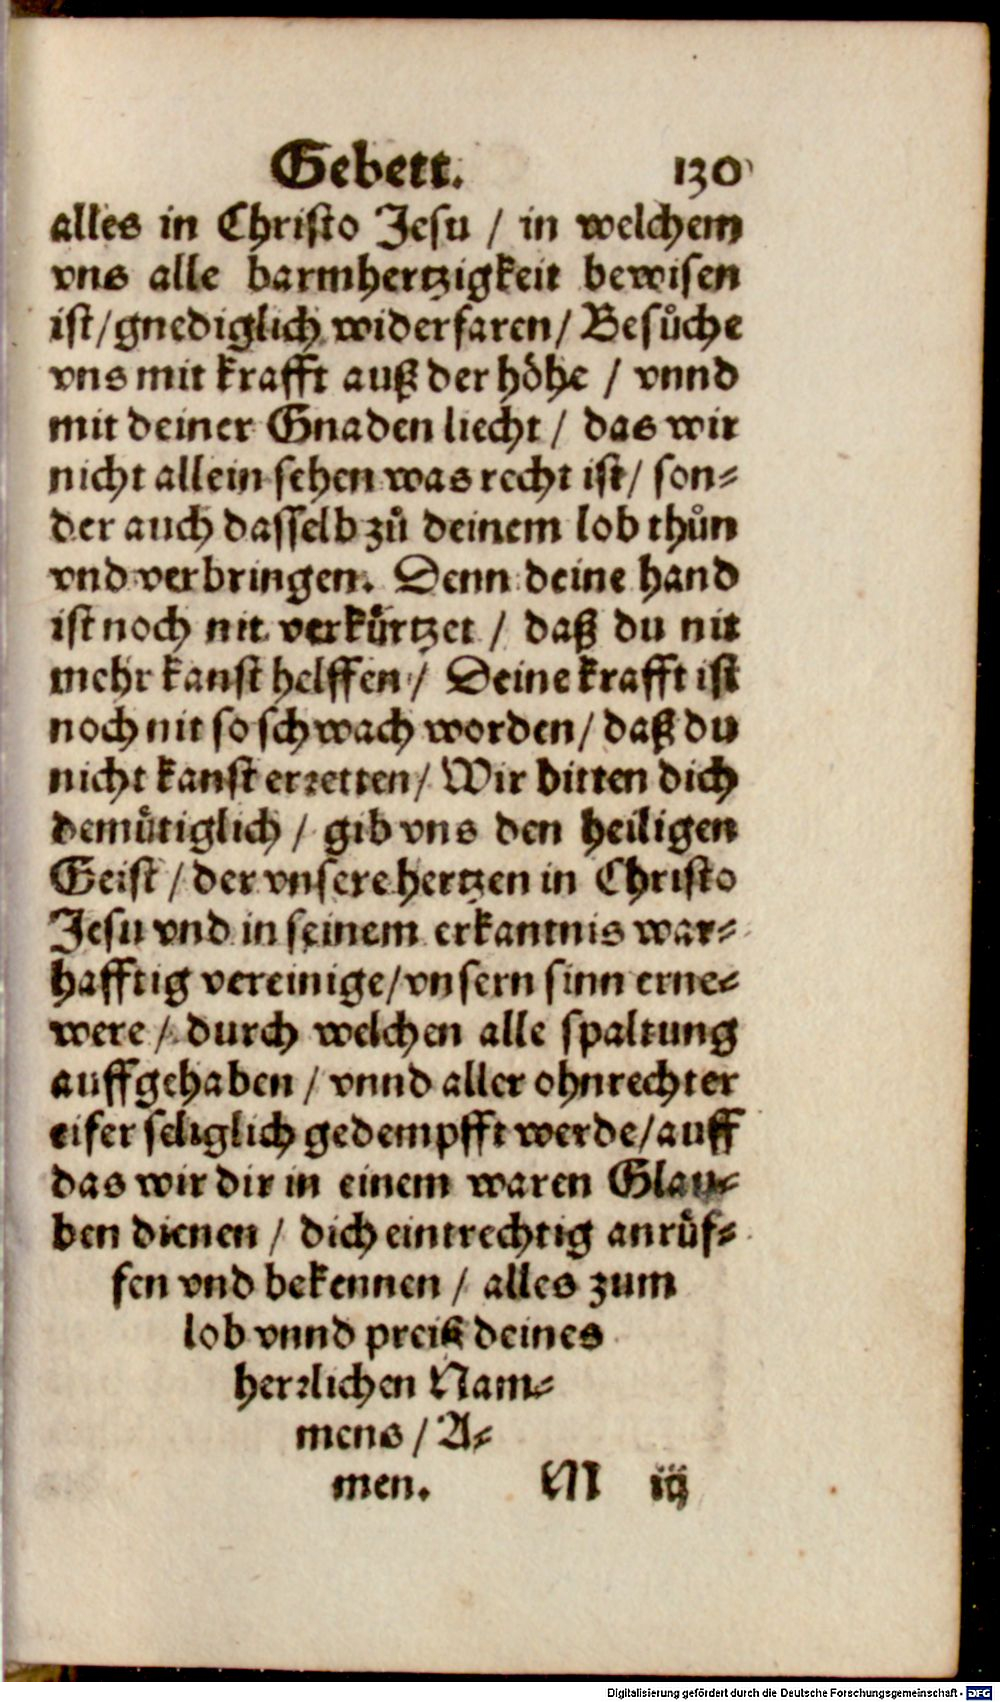 Gebett. 130
alles in Christo Jesu / in welchem
vns alle barmhertzigkeit bewisen
ist / gnediglich widerfaren / Besůche
vns mit krafft auß der höhe / vnnd
mit deiner Gnaden liecht / das wir
nicht allein sehen was recht ist / son⸗
der auch dasselb zů deinem lob thůn
vnd verbringen. Denn deine hand
ist noch nit verkürtzet / daß du nit
mehr kanst helffen / Deine krafft ist
noch nit so schwach worden / daß du
nicht kanst erretten / Wir bitten dich
demütiglich / gib vns den heiligen
Geist / der vnsere hertzen in Christo
Jesu vnd in seinem erkantnis war⸗
hafftig vereinige / vnsern sinn erne⸗
were / durch welchen alle spaltung
auffgehaben / vnnd aller ohnrechter
eifer seliglich gedempfft werde / auff
das wir dir in einem waren Glau⸗
ben dienen / dich eintrechtig anrüf⸗
fen vnd bekennen / alles zum
lob vnnd preiß deines
herrlichen Nam⸗
mens / A⸗
men. M iij
Digitalisierung gefördert durch die Deutsche Forschungsgemeinschaft - DFG